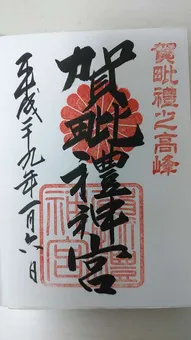 賀毗禮之高峰
賀毗禮神宮
平成廿九年一月六日